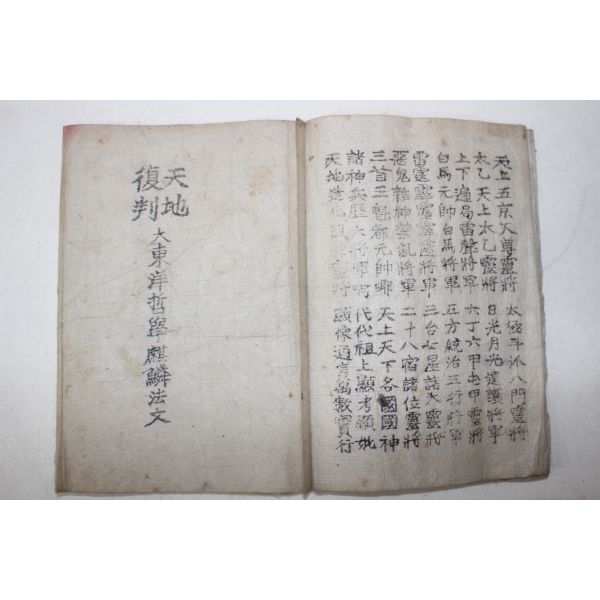 天上五京天尊靈將 太極斗 八門靈將
太乙天上太乙靈將 日光月光 護將軍
上下遍局雷聲將軍 六丁六甲屯甲靈將
白馬元帥白馬將軍 五方統治三行將軍
雷霆霹靂 將軍 三台七星諸大靈將
惡鬼雜神禁亂將軍 二十八宿諸位靈將
三首三魁都元帥哪 天上天下各國國神
諸神兵歷大將軍 代代祖上顯考顯妣
天地造化 靈將 顯像通言萬數實行
天地
復判
大東洋哲學麒麟法文